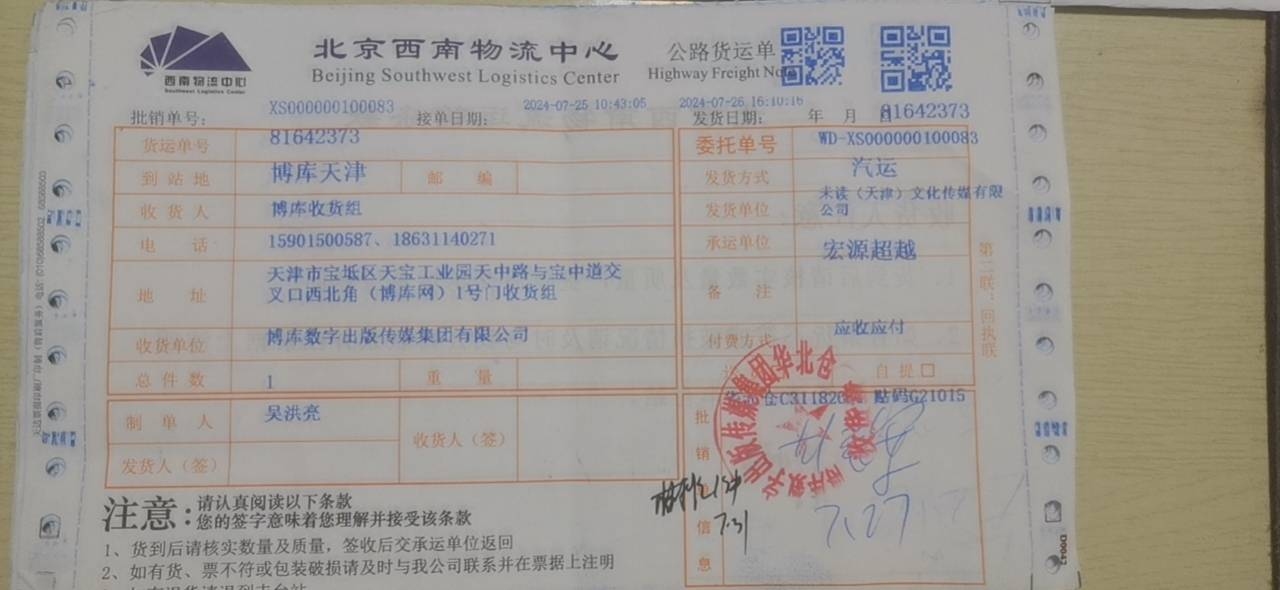 西南物流中心
Southwest Logistics Center
北京西南物流中心
Beijing Southwest Logistics Center
公路货运单
Highway Freight
批销单号: XS000000100083
接单日期: 2024-07-25 10:43:05
发货日期: 年 月 2024-07-26 16:10:16
81642373
货运单号 81642373
委托单号 WD-XS000000100083
到站地 博库天津 邮 编
发货方式 汽运
收货人 博库收货组
发货单位 未读（天津）文化传媒有限
公司
电 话 15901500587、18631140271
承运单位 宏源超越
地 址 天津市宝坻区天宝工业园天中路与宝中道交
叉口西北角（博库网）1号门收货组
备 注
收货单位 博库数字出版传媒集团有限公司
付费方式 应收应付
总件数 1 重 量
自提□
制单人 吴洪亮
收货人（签）
发货人（签）
批销 信息
贴码G21015
7.27
7.31
第二联：回执联
注意: 请认真阅读以下条款
您的签字意味着您理解并接受该条款
1、货到后请核实数量及质量，签收后交承运单位返回
2、如有货、票不符或包装破损请及时与我公司联系并在票据上注明